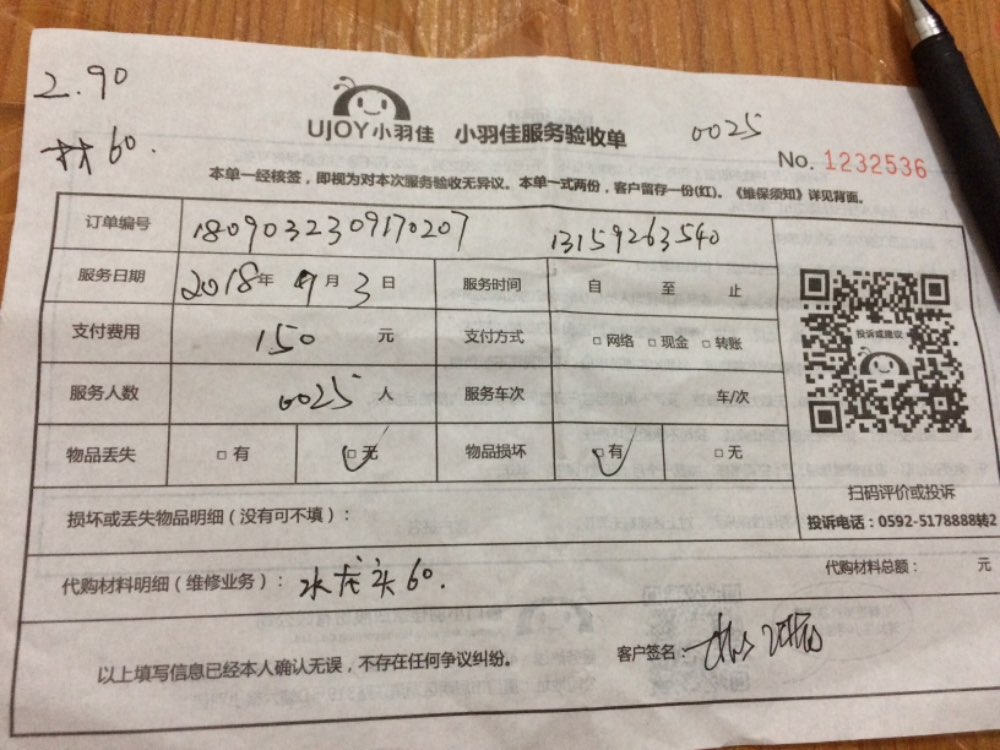 2.90
材60.
UJOY小羽佳 小羽佳服务验收单
0025
No. 1232536
本单一经核签，即视为对本次服务验收无异议。本单一式两份，客户留存一份(红)。《维保须知》详见背面。
订单编号 1809032309170207 13159263540
服务日期 2018年 9月 3日 服务时间 自 至 止
支付费用 150 元 支付方式 □ 网络 □ 现金 □ 转账
服务人数 0025 人 服务车次 车/次
物品丢失 □ 有 □ 无 物品损坏 □ 有 □ 无
投诉或建议
扫码评价或投诉
投诉电话：0592-5178888转2
损坏或丢失物品明细（没有可不填）：
代购材料明细（维修业务）：水龙头60.
代购材料总额： 元
以上填写信息已经本人确认无误，不存在任何争议纠纷。
客户签名：